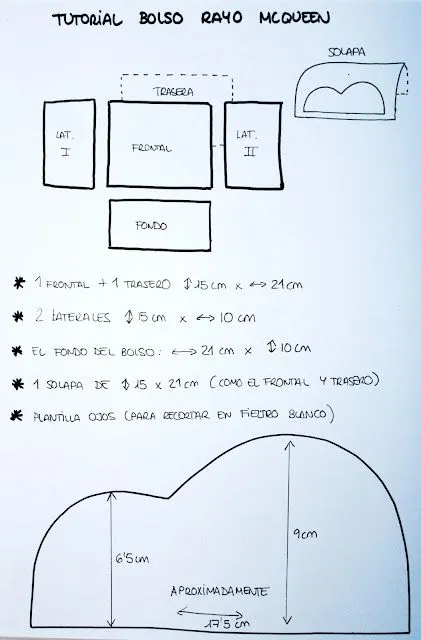 TUTORIAL BOLSO RAYO MCQUEEN
SOLAPA
TRASERA
LAT. I
FRONTAL
LAT. II
FONDO
* 1 FRONTAL + 1 TRASERO ↕ 15 cm x ↔ 21 cm
* 2 LATERALES ↕ 15 cm x ↔ 10 cm
* EL FONDO DEL BOLSO: ↔ 21 cm x ↕ 10 cm
* 1 SOLAPA DE ↕ 15 x 21 cm (COMO EL FRONTAL Y TRASERO)
* PLANTILLA OJOS (PARA RECORTAR EN FIELTRO BLANCO)
6'5 cm
9 cm
APROXIMADAMENTE
17'5 cm